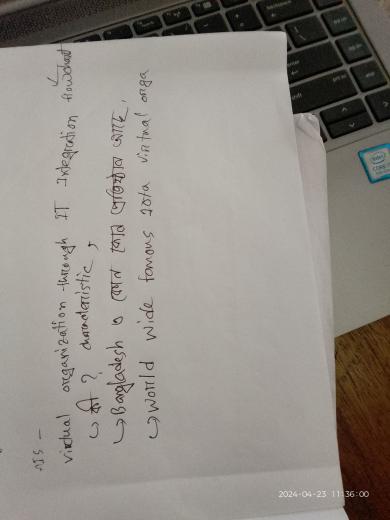 virtual organization through IT Integration flowchart
↳ কী ? characteristic,
↳ Bangladesh এ কোন কোন প্রতিষ্ঠান আছে,
↳ World wide famous 10ta virtual orga
2024-04-23 11:36:00